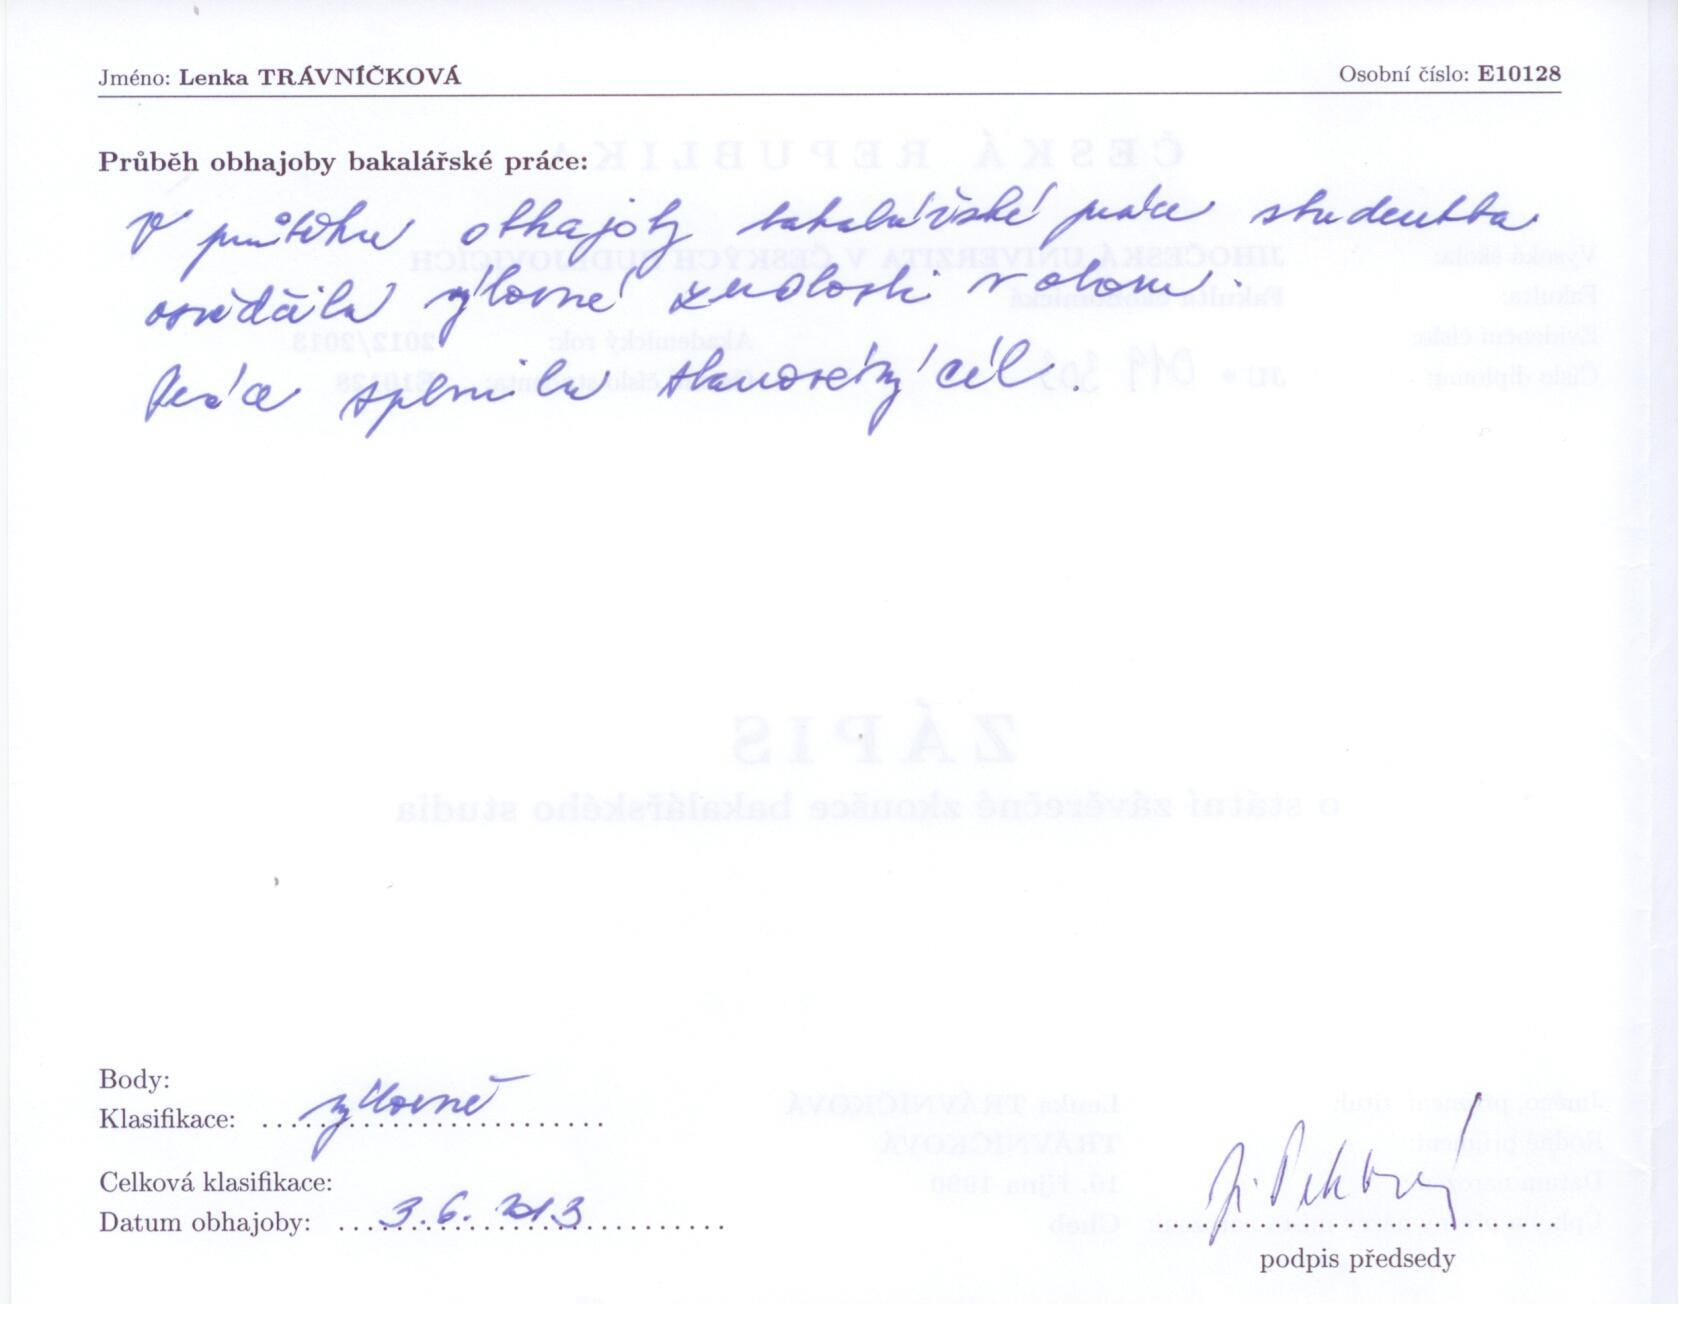 Jméno: Lenka TRÁVNÍČKOVÁ Osobní číslo: E10128
Průběh obhajoby bakalářské práce:
V průběhu obhajoby bakalářské práce studentka
osvědčila výborné znalosti v oboru.
Práce splnila stanovený cíl.
Body:
Klasifikace: výborně
Celková klasifikace:
Datum obhajoby: 3.6.2013
podpis předsedy